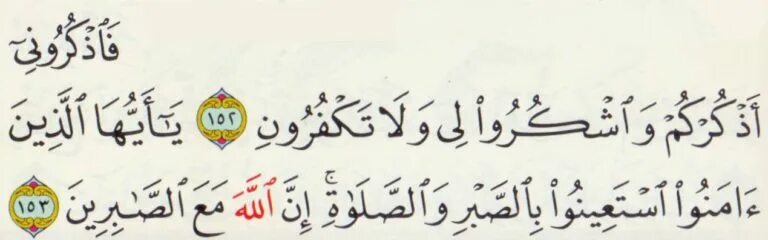 فَٱذْكُرُونِىٓ
أَذْكُرْكُمْ وَٱشْكُرُوا۟ لِى وَلَا تَكْفُرُونِ ١٥٢ يَـٰٓأَيُّهَا ٱلَّذِينَ
ءَامَنُوا۟ ٱسْتَعِينُوا۟ بِٱلصَّبْرِ وَٱلصَّلَوٰةِ ۚ إِنَّ ٱللَّهَ مَعَ ٱلصَّـٰبِرِينَ ١٥٣